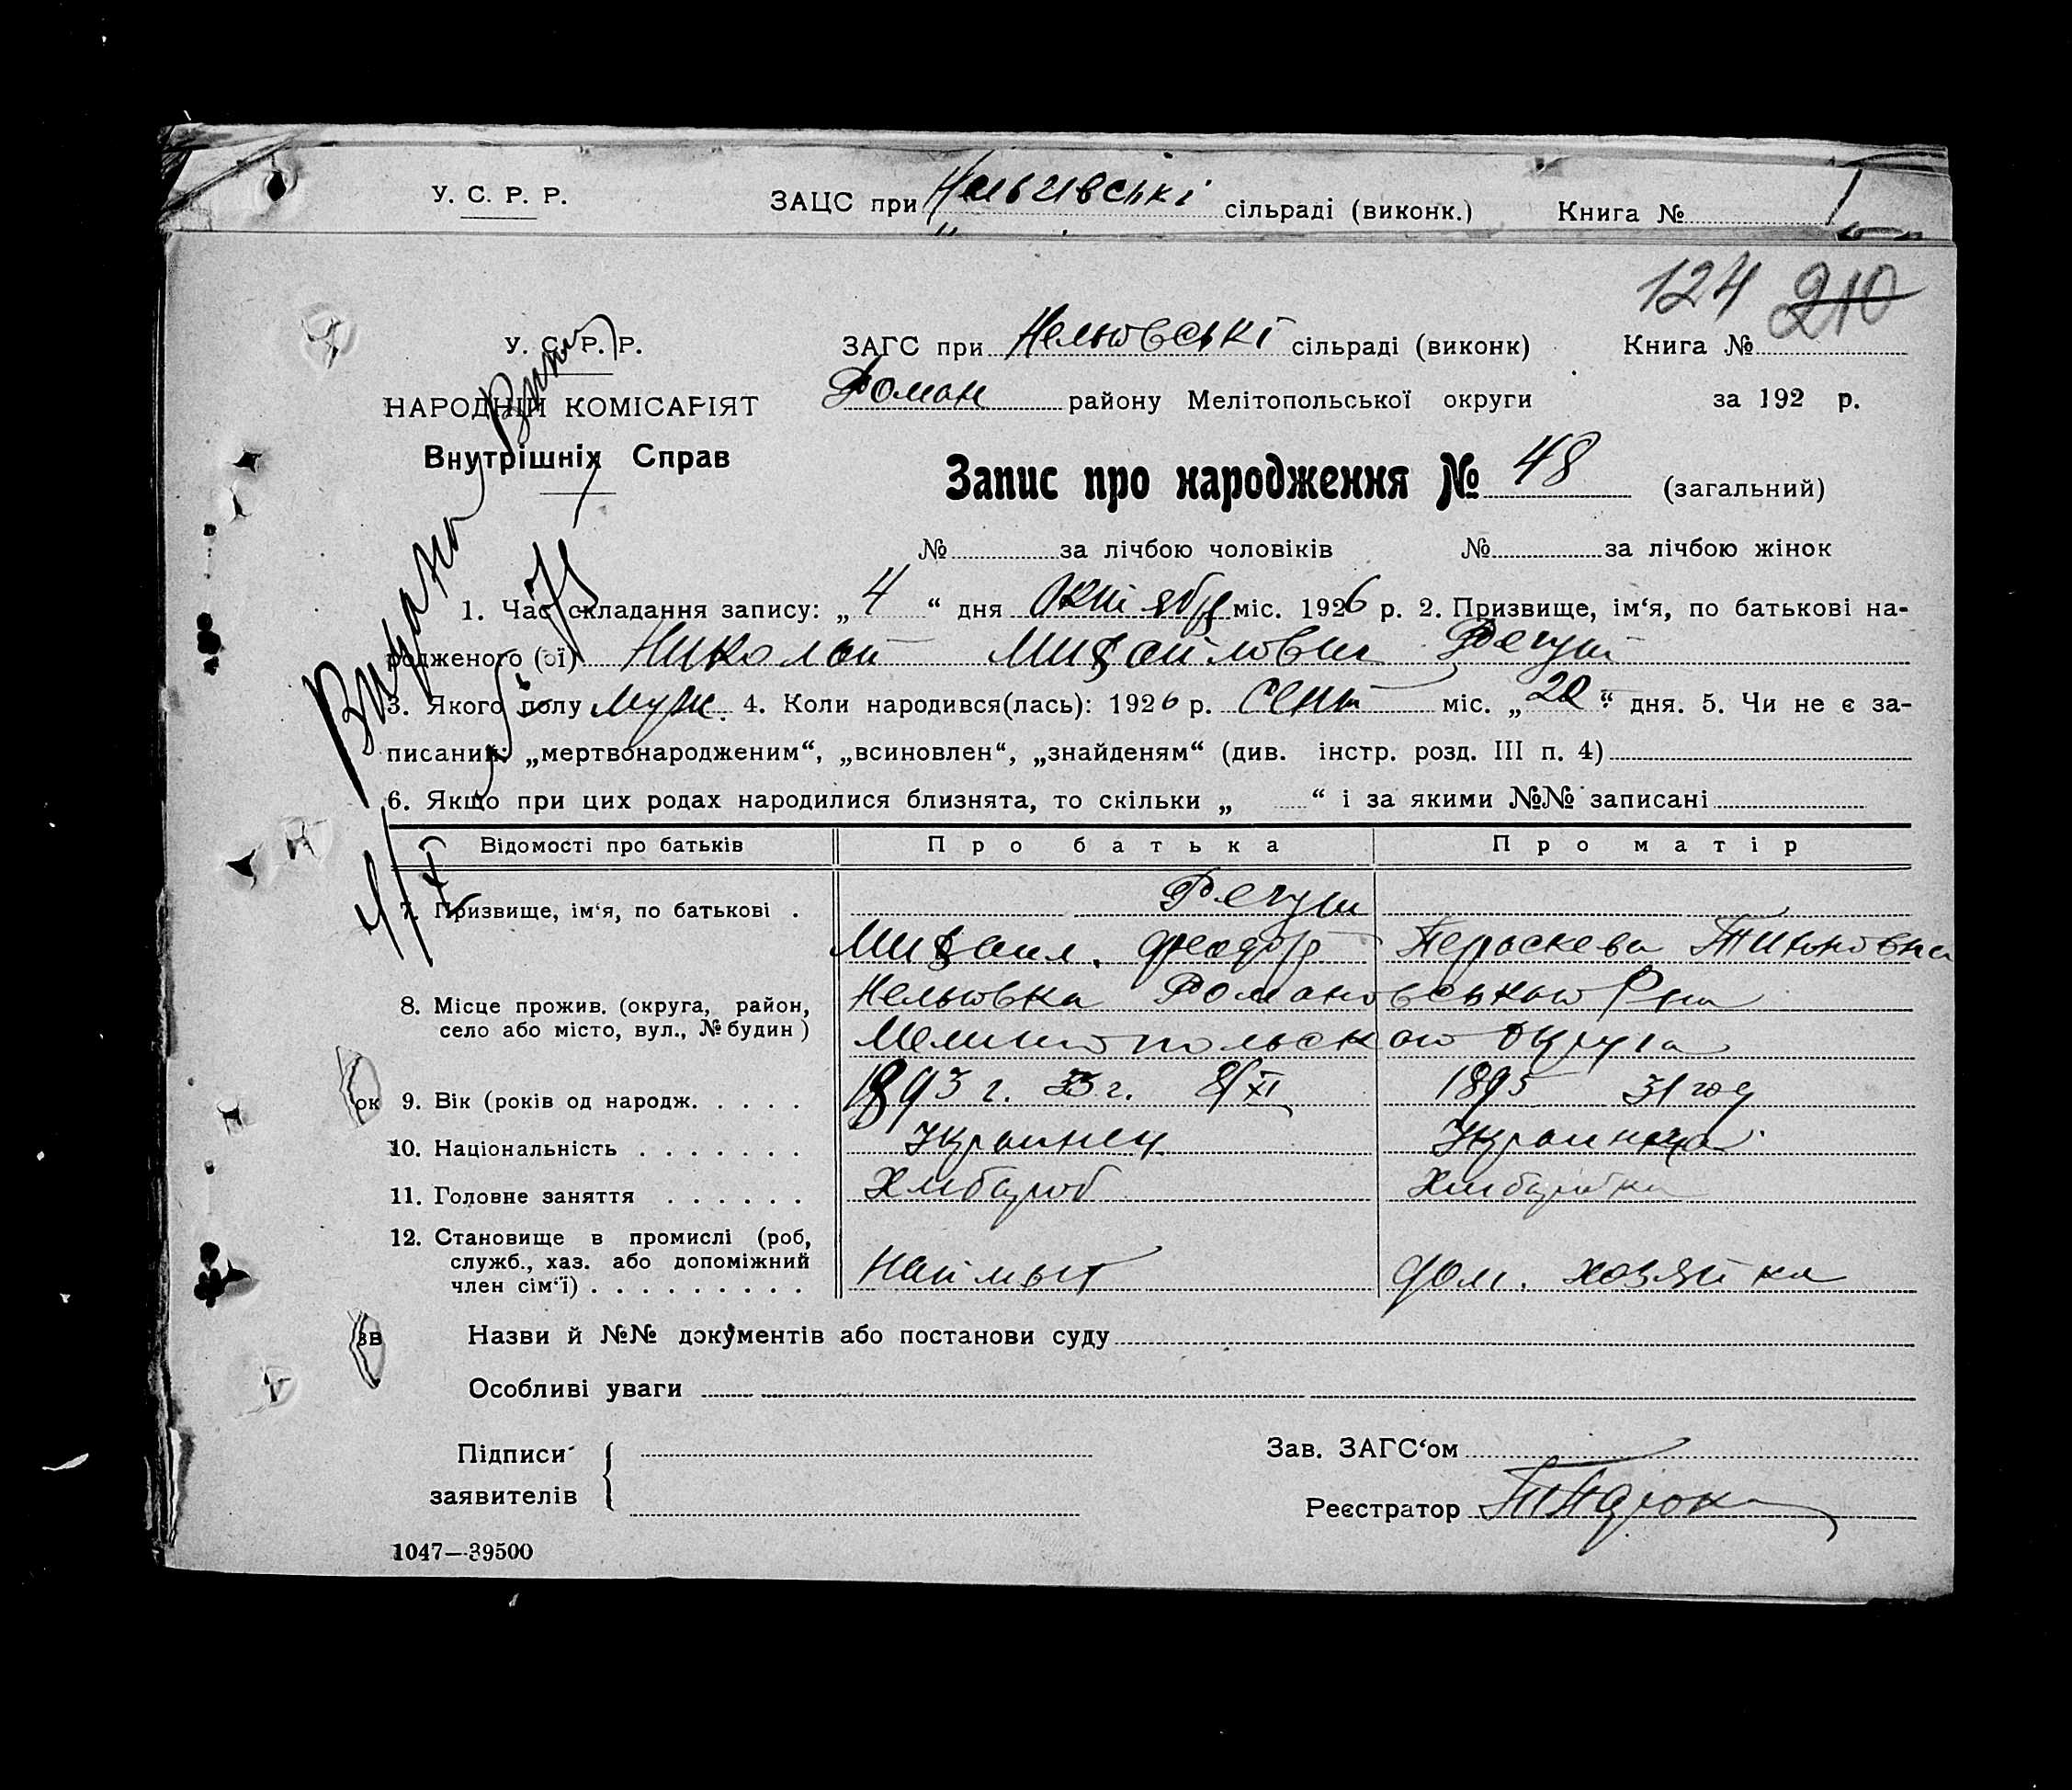 У. С. Р. Р. ЗАЦС при сільраді (виконк.) Книга №
124 210
У. С. Р. Р. ЗАГС при Нельговські сільраді (виконк) Книга №
НАРОДНІЙ КОМІСАРІЯТ Роман району Мелітопольської округи за 192 р.
Внутрішніх Справ
Запис про народження № 48 (загальний)
№ за лічбою чоловіків № за лічбою жінок
1. Час складання запису: „ 4 “ дня Октября міс. 1926 р. 2. Призвище, ім‘я, по батькові на-
родженого (ої) Николай Михайлович Регуш
3. Якого полу муж. 4. Коли народився(лась): 1926 р. Сент міс. „ 20 “ дня. 5. Чи не є за-
писаний: „мертвонародженим“, „всиновлен“, „знайденям“ (див. інстр. розд. III п. 4)
6. Якщо при цих родах народилися близнята, то скільки „ “ і за якими №№ записані
Відомості про батьків Про батька Про матір
Регуш
7. Призвище, ім‘я, по батькові .
Михаил. Феодор Пераскева
8. Місце прожив. (округа, район, Нельговка Романовського Р-на
село або місто, вул., № будин) Мелитопольского округа
9. Вік (років од народж. . . . . 1893 г. 33 г. 8/XI 1895 31 год
10. Національність . . . . . . . Украинец Украинка
11. Головне заняття . . . . . . Хлібороб Хліборобка
12. Становище в промислі (роб,
служб., хаз. або допоміжний
член сім‘ї) . . . . . . . . . Наймыт дом. хозяйка
Назви й №№ документів або постанови суду
Особливі уваги
Підписи Зав. ЗАГС‘ом
заявителів Реєстратор
1047—39500
Видано
4/X
ок
зв